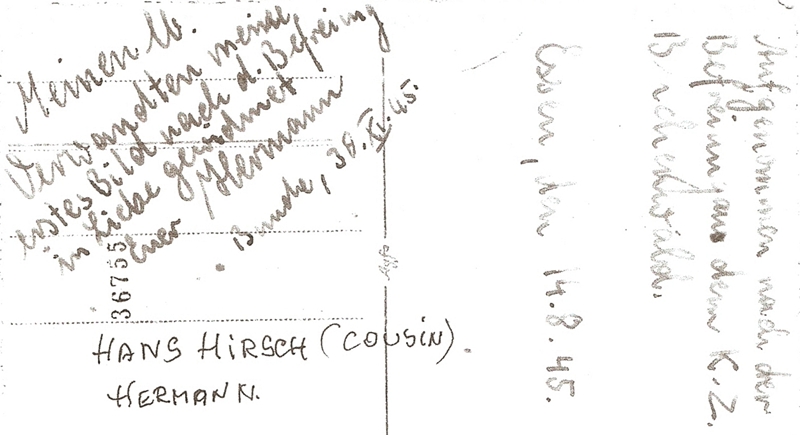 Meinen lb.
Verwandten meine
erstes Bild nach d. Befreiung
in Liebe gewidmet
Euer Hermann
Bünde, 30.XI.45.
36755
HANS HIRSCH (COUSIN).
HERMANN.
Aufgenommen nach der
Befreiung aus dem K.Z.
Buchenwald.
Essen, den 14.8.45.